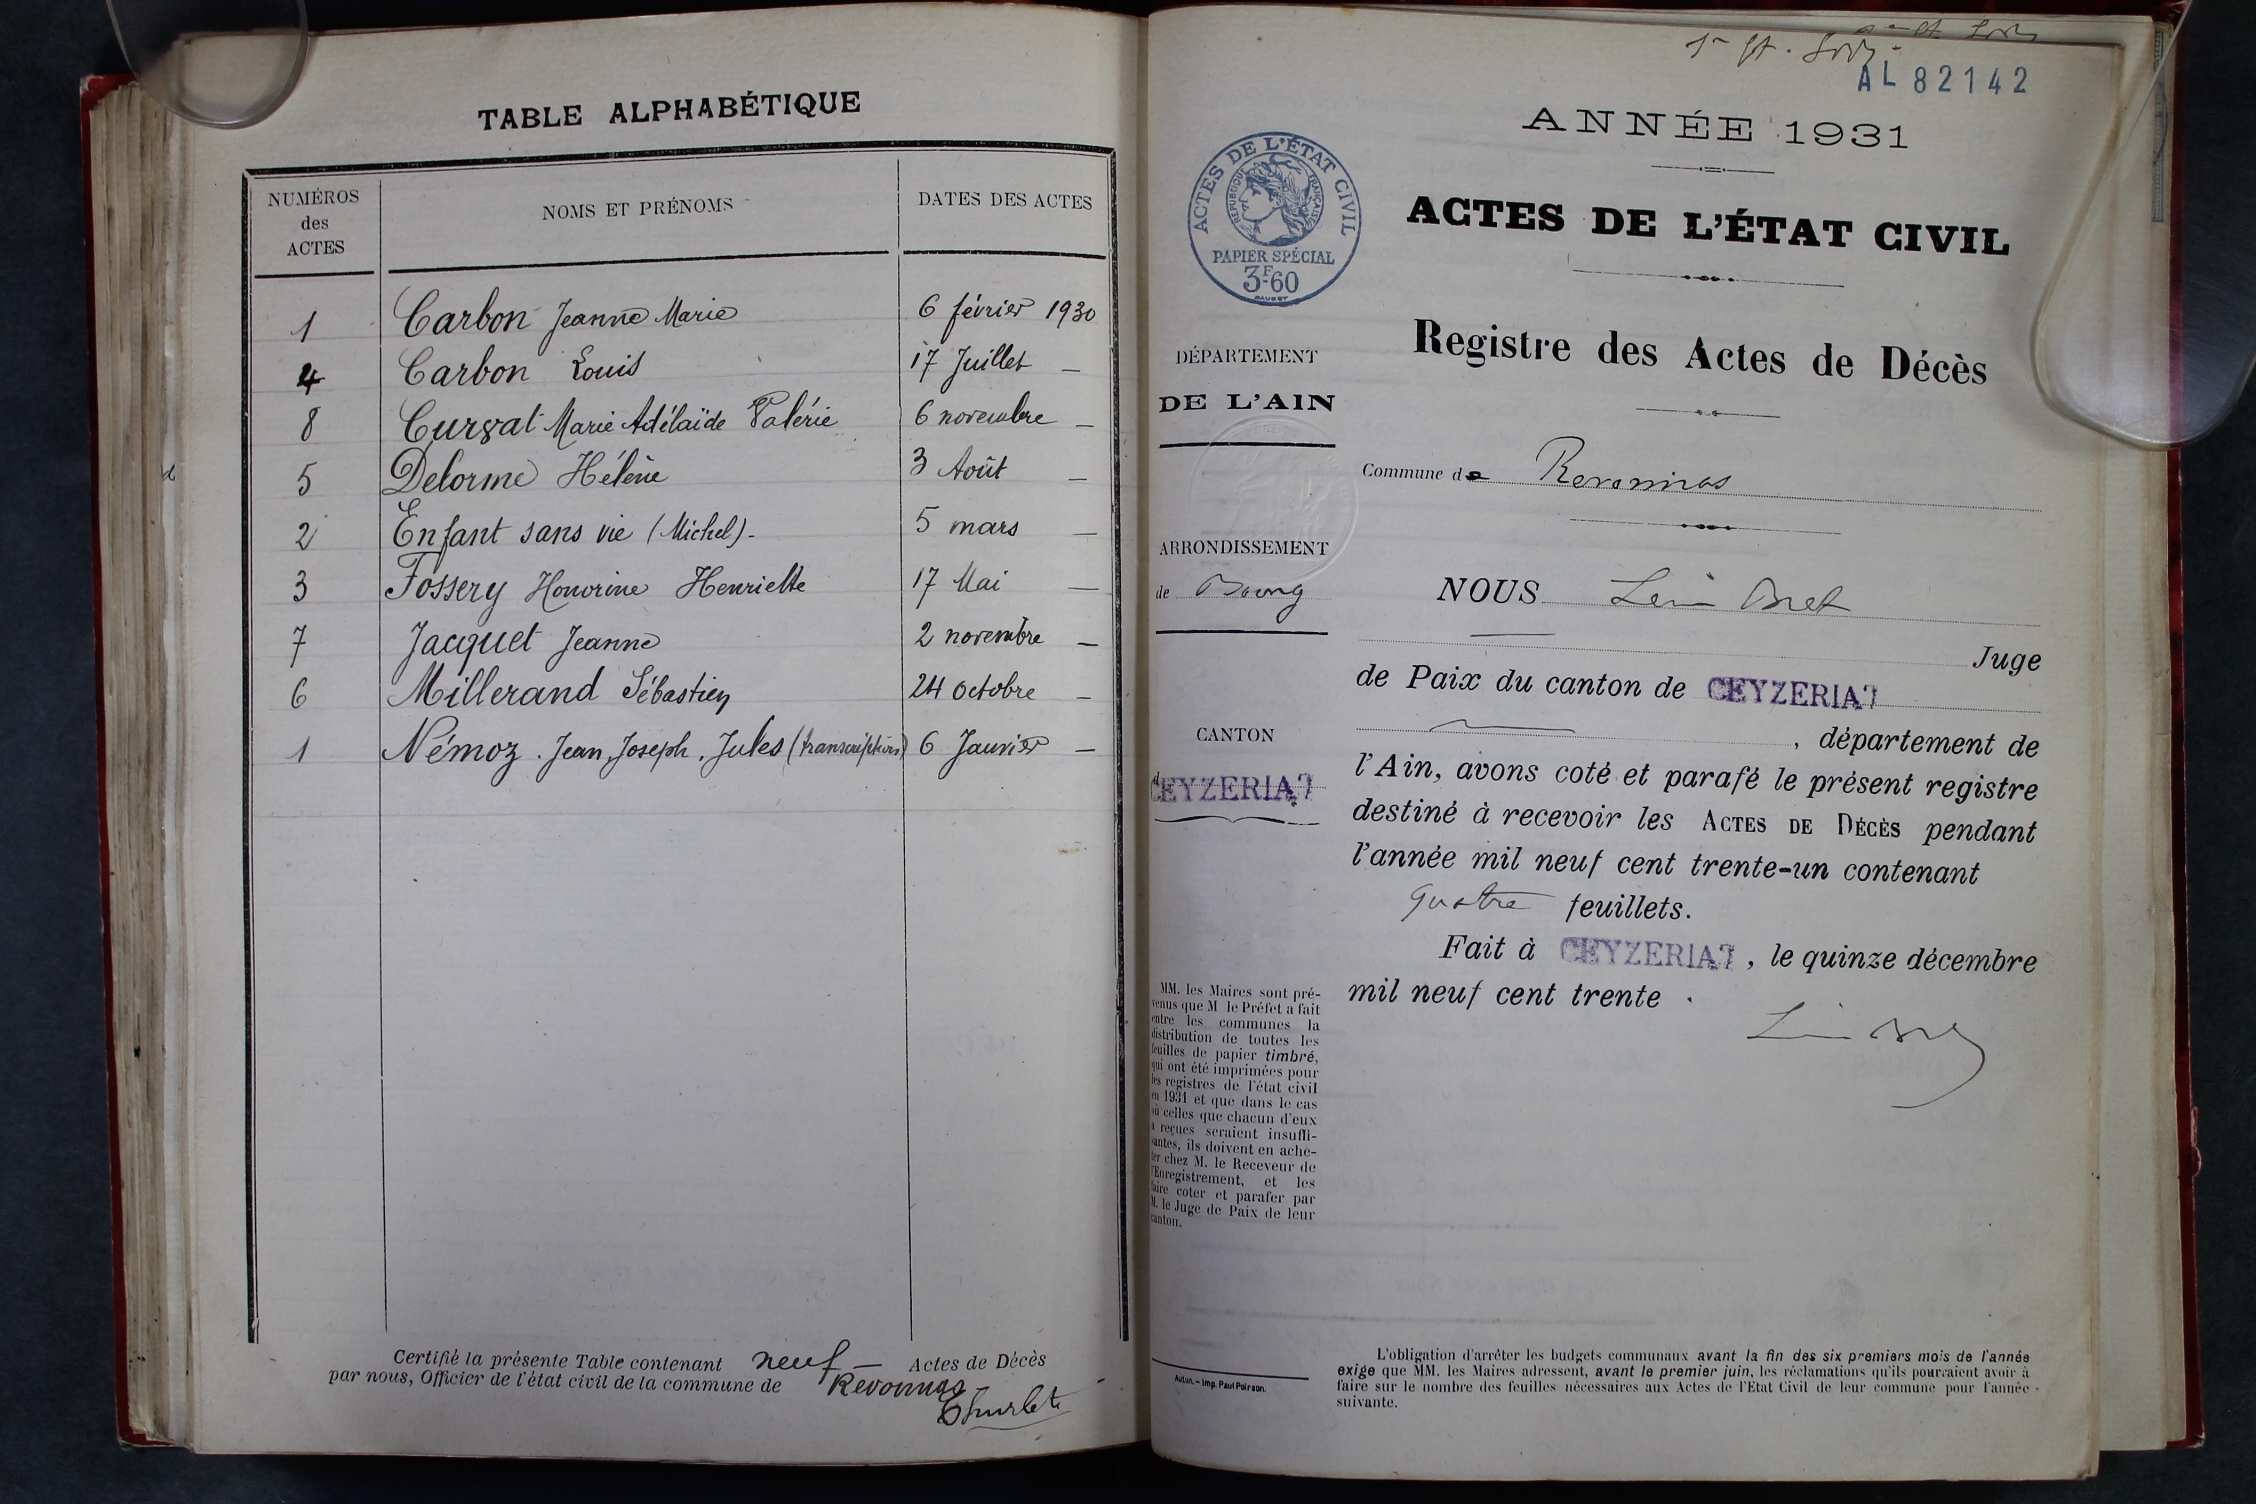 TABLE ALPHABÉTIQUE
NUMÉROS
des
ACTES
NOMS ET PRÉNOMS
DATES DES ACTES
1 Carbon Jeanne Marie 6 février 1930
4 Carbon Louis 17 Juillet —
8 Curvat Marie Adélaïde Valérie 6 novembre —
5 Delorme Hélène 3 Août —
2 Enfant sans vie (Michel) - 5 mars —
3 Fossery Honorine Henriette 17 Mai —
7 Jacquet Jeanne 2 novembre —
6 Millerand Sébastien 24 octobre —
1 Némoz . Jean, Joseph, Jules (transcription) 6 Janvier —
Certifié la présente Table contenant neuf — Actes de Décès
par nous, Officier de l'état civil de la commune de Revonnas
AL 82142
ANNÉE 1931
ACTES DE L'ÉTAT CIVIL
RÉPUBLIQUE FRANÇAISE
PAPIER SPÉCIAL
3F.60
ACTES DE L'ÉTAT CIVIL
Registre des Actes de Décès
DÉPARTEMENT
DE L'AIN
Commune de Revonnas
ARRONDISSEMENT
de Bourg
NOUS Léon Bret
Juge
de Paix du canton de CEYZERIAT
CANTON
CEYZERIAT
, département de
l'Ain, avons coté et parafé le présent registre
destiné à recevoir les ACTES DE DÉCÈS pendant
l'année mil neuf cent trente-un contenant
quatre feuillets.
Fait à CEYZERIAT, le quinze décembre
mil neuf cent trente .
MM. les Maires sont pré-
venus que M le Préfet a fait
entre les communes la
distribution de toutes les
feuilles de papier timbré,
qui ont été imprimées pour
les registres de l'état civil
en 1931 et que dans le cas
où celles que chacun d'eux
a reçues seraient insuffi-
santes, ils doivent en ache-
ter chez M. le Receveur de
l'Enregistrement, et les
faire coter et parafer par
M. le Juge de Paix de leur
canton.
Autun. — Imp. Paul Poirson.
L'obligation d'arrêter les budgets communaux avant la fin des six premiers mois de l'année
exige que MM. les Maires adressent, avant le premier juin, les réclamations qu'ils pourraient avoir à
faire sur le nombre des feuilles nécessaires aux Actes de l'Etat Civil de leur commune pour l'année
suivante.